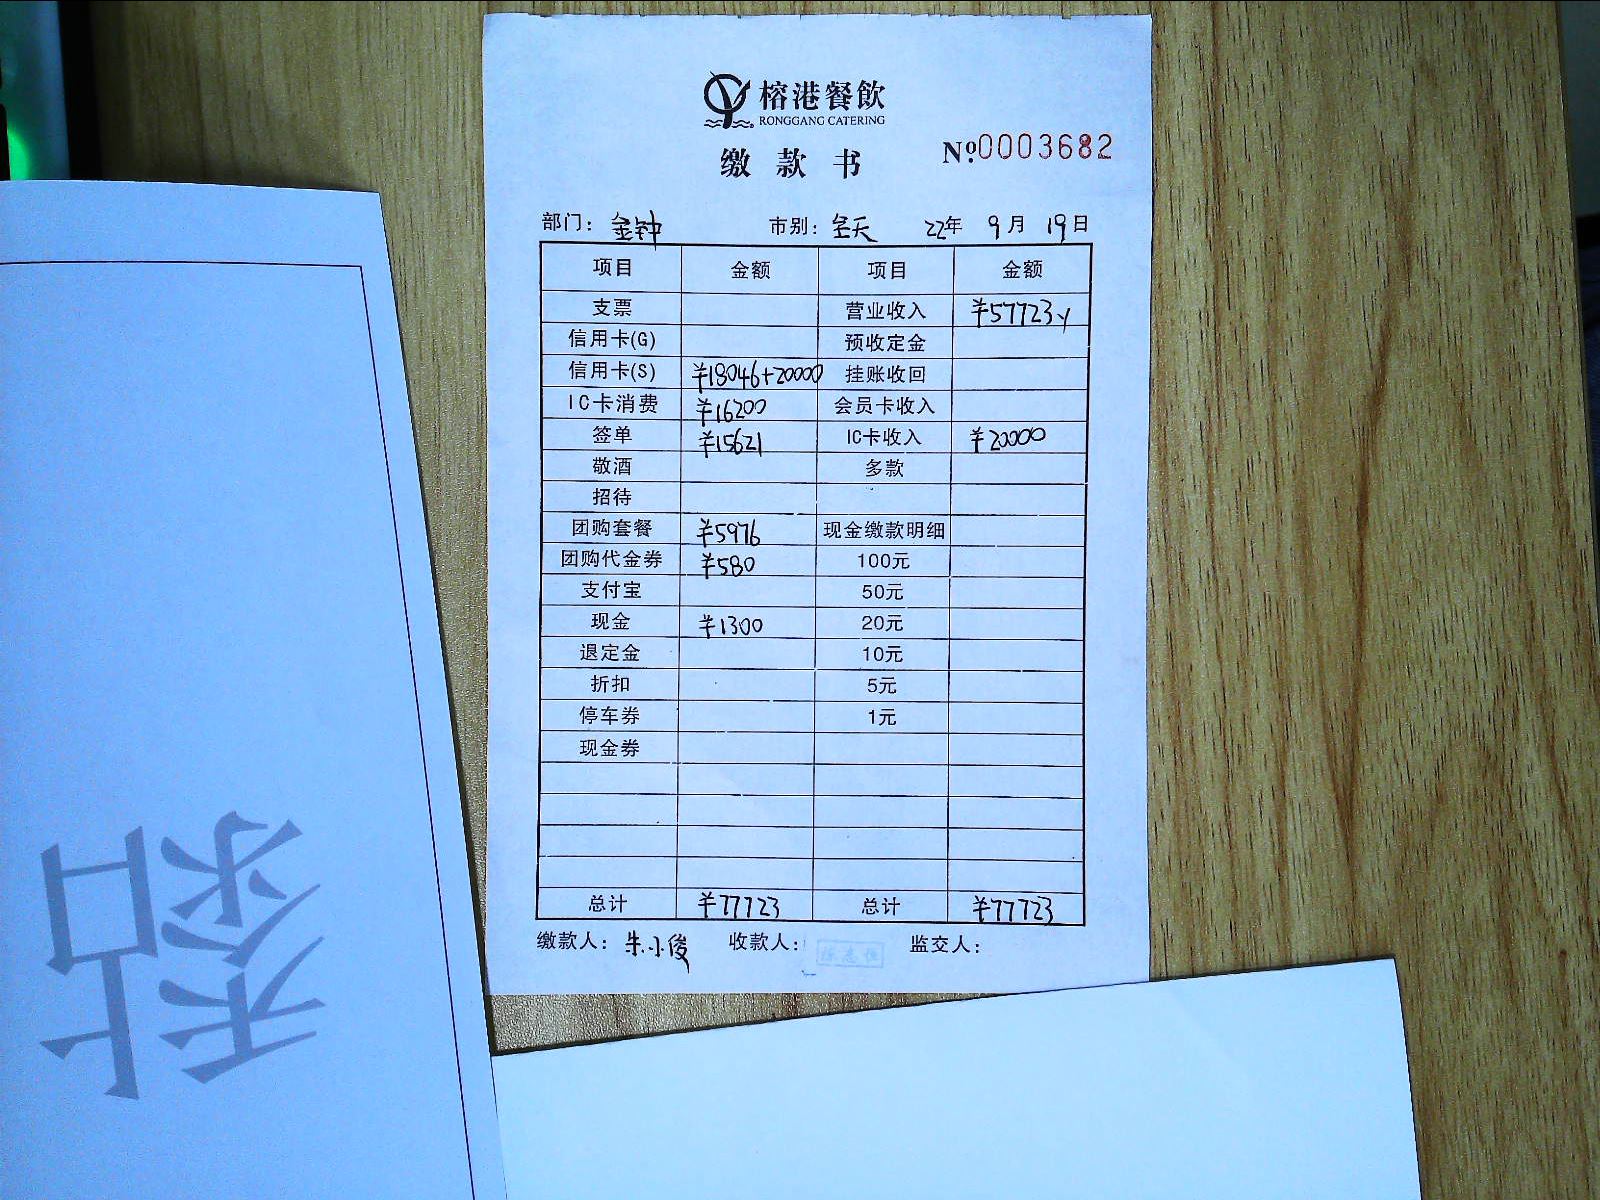 榕港餐飲
RONGGANG CATERING
缴款书
Nº.0003682
部门：金钟 市别：全天 22年 9月 19日
项目 金额 项目 金额
支票 营业收入 ¥57723
信用卡(G) 预收定金
信用卡(S) ¥18046+20000 挂账收回
IC卡消费 ¥16200 会员卡收入
签单 ¥15621 IC卡收入 ¥20000
敬酒 多款
招待
团购套餐 ¥5976 现金缴款明细
团购代金券 ¥580 100元
支付宝 50元
现金 ¥1300 20元
退定金 10元
折扣 5元
停车券 1元
现金券
总计 ¥77723 总计 ¥77723
缴款人：朱小俊 收款人： 监交人：